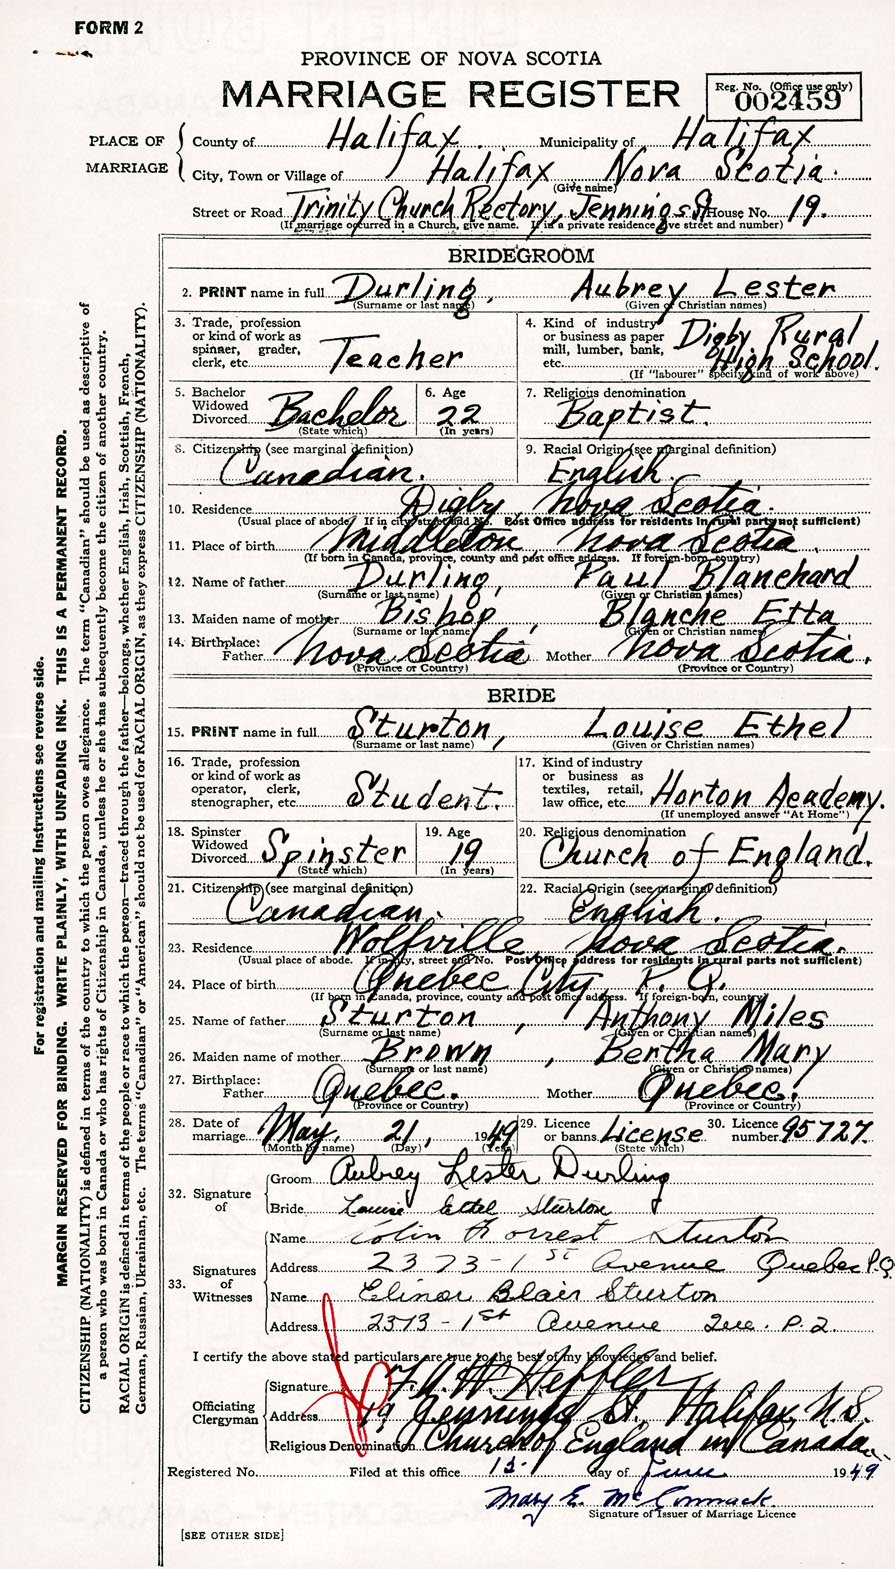 FORM 2
PROVINCE OF NOVA SCOTIA
MARRIAGE REGISTER
Reg. No. (Office use only)
002459
PLACE OF MARRIAGE
County of Halifax Municipality of Halifax
City, Town or Village of Halifax Nova Scotia.
(Give name)
Street or Road Trinity Church Rectory, Jennings St House No. 19.
(If marriage occurred in a Church, give name. If in a private residence give street and number)
BRIDEGROOM
2. PRINT name in full Durling, Aubrey Lester
(Surname or last name) (Given or Christian names)
3. Trade, profession or kind of work as spinner, grader, clerk, etc. Teacher
4. Kind of industry or business as paper mill, lumber, bank, etc. Digby Rural High School.
(If "labourer" specify kind of work above)
5. Bachelor Widowed Divorced Bachelor
(State which)
6. Age 22
(In years)
7. Religious denomination
Baptist.
8. Citizenship (see marginal definition)
Canadian.
9. Racial Origin (see marginal definition)
English.
10. Residence Digby, Nova Scotia.
(Usual place of abode. If in city, street and No. Post Office address for residents in rural parts not sufficient)
11. Place of birth Middleton, Nova Scotia.
(If born in Canada, province, county and post office address. If foreign-born, country)
12. Name of father Durling, Paul Blanchard
(Surname or last name) (Given or Christian names)
13. Maiden name of mother Bishop, Blanche Etta
(Surname or last name) (Given or Christian names)
14. Birthplace:
Father Nova Scotia Mother Nova Scotia.
(Province or Country) (Province or Country)
BRIDE
15. PRINT name in full Sturton, Louise Ethel
(Surname or last name) (Given or Christian names)
16. Trade, profession or kind of work as operator, clerk, stenographer, etc. Student.
17. Kind of industry or business as textiles, retail, law office, etc. Horton Academy.
(If unemployed answer "At Home")
18. Spinster Widowed Divorced Spinster
(State which)
19. Age 19
(In years)
20. Religious denomination
Church of England.
21. Citizenship (see marginal definition)
Canadian.
22. Racial Origin (see marginal definition)
English.
23. Residence Wolfville, Nova Scotia.
(Usual place of abode. If in city, street and No. Post Office address for residents in rural parts not sufficient)
24. Place of birth Quebec City, P. Q.
(If born in Canada, province, county and post office address. If foreign-born, country)
25. Name of father Sturton, Anthony Miles
(Surname or last name) (Given or Christian names)
26. Maiden name of mother Brown, Bertha Mary
(Surname or last name) (Given or Christian names)
27. Birthplace:
Father Quebec. Mother Quebec.
(Province or Country) (Province or Country)
28. Date of marriage May 21, 1949
(Month by name) (Day) (Year)
29. Licence or banns License
(State which)
30. Licence number 95727.
32. Signature of
Groom Aubrey Lester Durling
Bride Louise Ethel Sturton
33. Signatures of Witnesses
Name Colin Forrest Sturton
Address 2373 - 1st Avenue Quebec P.Q.
Name Elinor Blair Sturton
Address 2373 - 1st Avenue Que. P.Q.
I certify the above stated particulars are true to the best of my knowledge and belief.
Officiating Clergyman
Signature F. A. H. Heffler
Address 19 Jennings St. Halifax N.S.
Religious Denomination Church of England in Canada
Registered No. Filed at this office 13. day of June 1949
Mary E. McCormack.
Signature of Issuer of Marriage Licence
[SEE OTHER SIDE]
For registration and mailing instructions see reverse side.
MARGIN RESERVED FOR BINDING. WRITE PLAINLY, WITH UNFADING INK. THIS IS A PERMANENT RECORD.
CITIZENSHIP (NATIONALITY) is defined in terms of the country to which the person owes allegiance. The term "Canadian" should be used as descriptive of
a person who was born in Canada or who has rights of Citizenship in Canada, unless he or she has subsequently become the citizen of another country.
RACIAL ORIGIN is defined in terms of the people or race to which the person—traced through the father—belongs, whether English, Irish, Scottish, French,
German, Russian, Ukrainian, etc. The terms "Canadian" or "American" should not be used for RACIAL ORIGIN, as they express CITIZENSHIP (NATIONALITY).